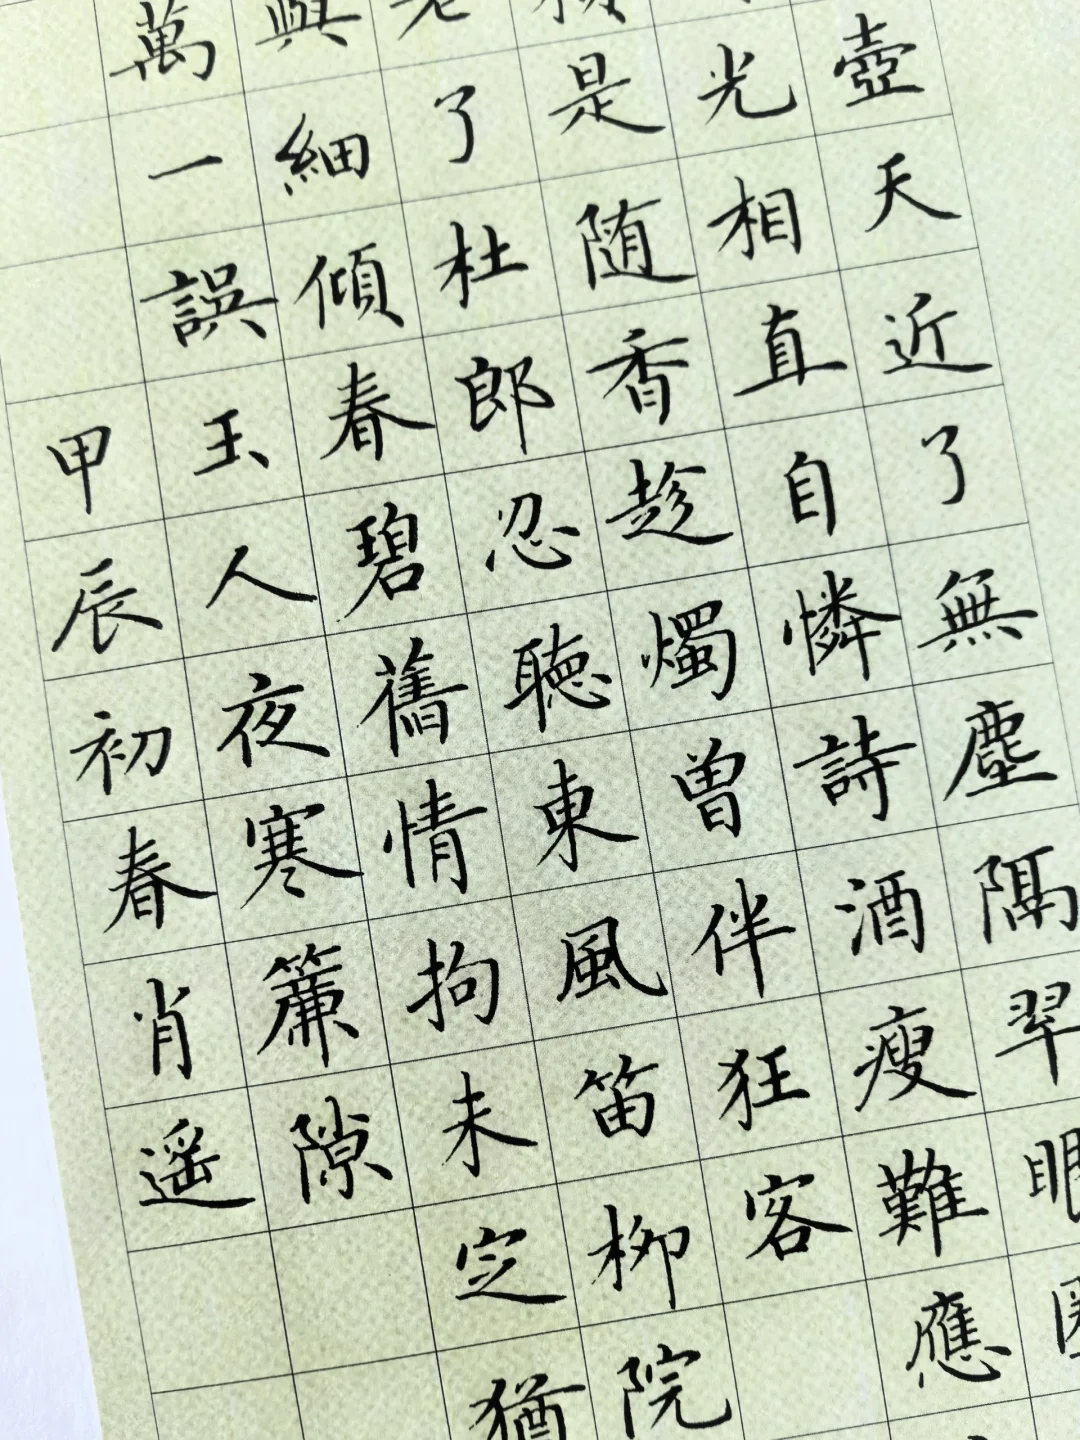 壺天近了無塵隔翠眼
光相直自憐詩酒瘦難應
是随香趁燭曾伴狂客
老了杜郎忍聽東風笛柳院
與細傾春碧舊情拘未定猶
萬一誤玉人夜寒簾隙
甲辰初春肖遥